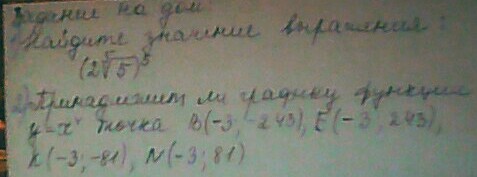 Задание на дом:
1) Найдите значение выражения:
(2⁵√5)⁵
2) Принадлежит ли графику функции
y=x⁴ точка B(-3; -243), E(-3; 243),
K(-3; -81), N(-3; 81)